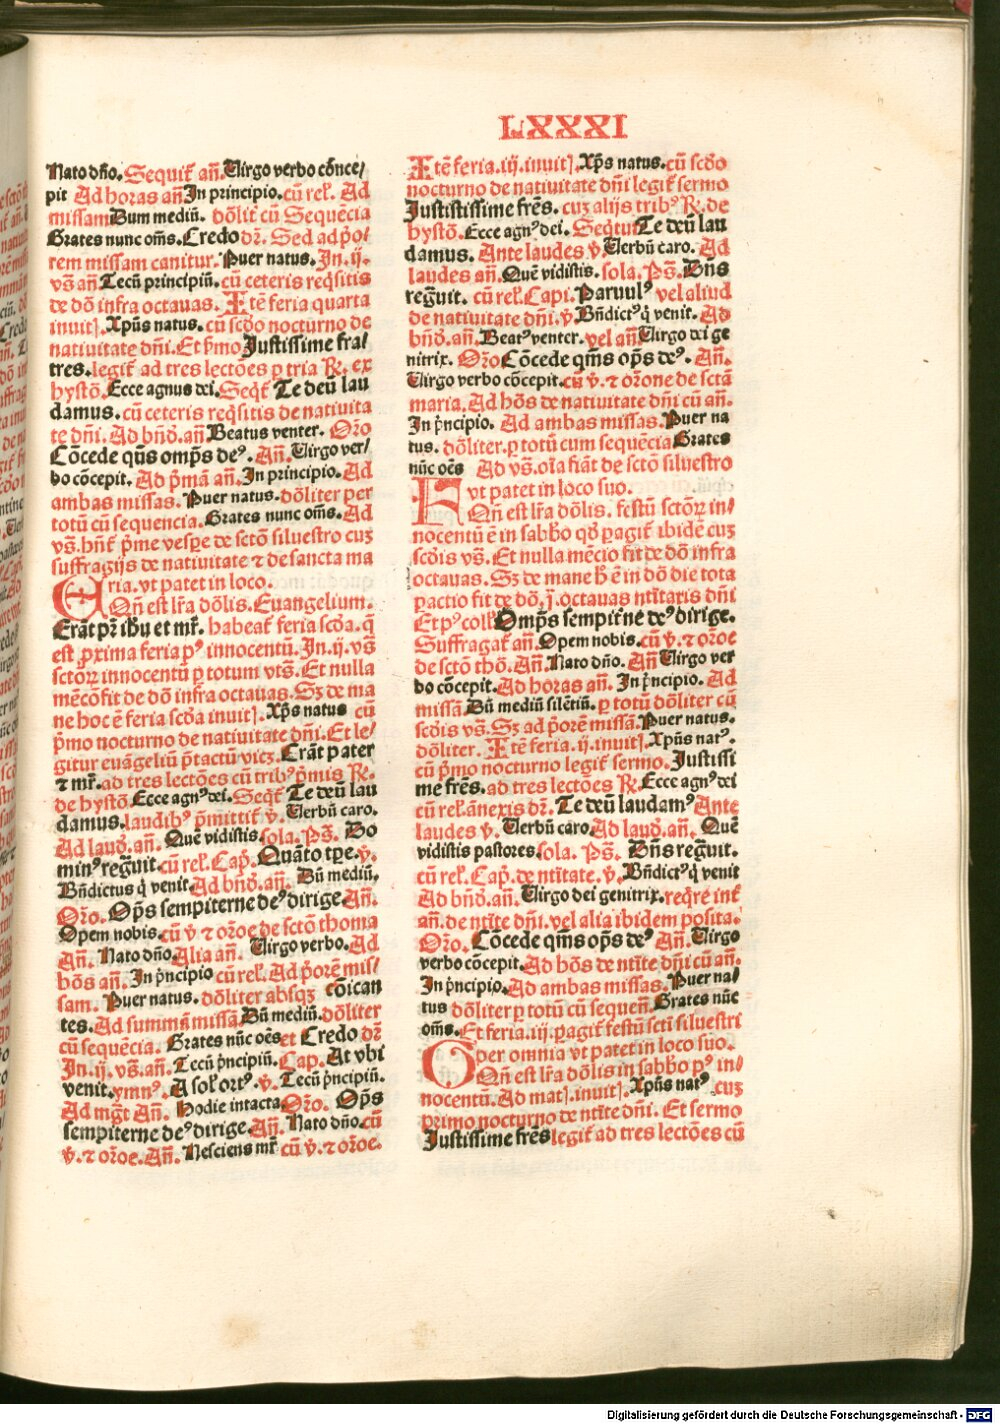 LXXXI
Nato dn̄o. Sequit̄ an̄. Uirgo verbo cōnce/
pit Ad horas an̄ In principio. cū rel̄. Ad
missam Dum mediū. dōlit cū Sequēcia
Grates nunc om̄s. Credo dr̄. Sed ad p̄o/
rem missam canitur. Puer natus. In .ij.
vs̄ an̄ Tecū principiū. cū ceteris reqͣsitis
de dō infra octauas. Itē feria quarta
inuitͣ. Xp̄us natus. cū scd̄o nocturno de
natiuitate dn̄i. Et p̄mo Justissime fra/
tres. legit̄ ad tres lectōes p tria R. ex
hystō. Ecce agnus dei. Seqt̄ Te deū lau
damus. cū ceteris reqͣsitis de natiuita
te dn̄i. Ad bn̄d. an̄ Beatus venter. Oro
Cōcede qūs omp̄s deꝰ. An̄. Uirgo ver/
bo cōcepit. Ad p̄mā an̄. In principio. Ad
ambas missas. Puer natus. dōliter per
totū cū sequencia. Grates nunc om̄s. Ad
vs̄. hn̄t p̄me vesp̄e de sctō siluestro cuꝫ
suffragijs de natiuitate ⁊ de sancta ma
ria. vt patet in loco.
Qn̄ est lr̄a dōlis. Euangelium.
Erāt pr̄ ih̄u et mr̄. habeat̄ feria scd̄a. q̄
est p̄xima feria pꝰ innocentū. In .ij. vs̄
sctōꝝ innocentū p totum vts̄. Et nulla
mēcō fit de dō infra octauas. Sꝫ de ma
ne hoc ē feria scd̄a inuitͣ. Xp̄s natus cū
p̄mo nocturno de natiuitate dn̄i. Et le/
gitur euāgeliū p̄tactū vicꝫ. Erāt pater
⁊ mr̄. ad tres lectōes cū tribꝰ p̄mis R.
de hystō Ecce agnꝰ dei. Seqt̄ Te deū lau
damus. laudibꝰ p̄mittit̄ v̄. Uerbū caro.
Ad laud̄. an̄. Quē vidistis. sola. Ps̄. Do
minꝰ regn̄uit. cū rel̄. Cap̄. Quāto tp̄e. v̄.
Bn̄dictus q̄ venit Ad bn̄d. an̄. Dū mediū.
Oro. Op̄s sempiterne deꝰ dirige. An̄.
Opem nobis. cū v̄ ⁊ orōe de sctō thoma
An̄. Nato dn̄o. Alia an̄. Uirgo verbo. Ad
hōs an̄. In p̄ncipio cū rel̄. Ad p̄orē mis/
sam. Puer natus. dōliter absqꝫ cōican
tes. Ad summā missā Dū mediū. dōliter
cū sequēcia. Grates nūc oēs et Credo dr̄
In .ij. vs̄. an̄. Tecū p̄ncipiū. Cap. At vbi
venit. ymnꝰ. A sol̄ ortꝰ. v̄. Tecū p̄ncipiū.
Ad mgt̄ An̄. Hodie intacta Oro. Op̄s
sempiterne deꝰ dirige. An̄. Nato dn̄o. cū
v̄. ⁊ orōe. An̄. Nesciens mr̄ cū v̄. ⁊ orōe.
Itē feria .iij. inuitͣ. Xp̄s natus. cū scd̄o
nocturno de natiuitate dn̄i legit̄ sermo
Justistissime frēs. cuꝫ alijs tribꝰ R. de
hystō. Ecce agnꝰ dei. Seqtur Te deū lau
damus. Ante laudes v̄. Uerbū caro. Ad
laudes an̄. Quē vidistis. sola. Ps̄. Dn̄s
regn̄uit. cū rel̄. Capi. Paruulꝰ vel aliud
de natiuitate dn̄i. v̄ Bn̄dictꝰ q̄ venit. Ad
bn̄d. an̄. Beatꝰ venter. vel an̄ Uirgo dei ge
nitrix. Oro Cōcede qm̄s op̄s deꝰ. An̄.
Uirgo verbo cōcepit. cū v̄. ⁊ orōne de sctā
maria. Ad hōs de natiuitate dn̄i cū an̄.
In p̄ncipio. Ad ambas missas. Puer na
tus. dōliter. p totū cum sequēcia Grates
nūc oēs Ad vs̄. oīa fiāt de sctō siluestro
vt patet in loco suo.
Qn̄ est lr̄a dōlis. festū sctōꝝ in/
nocentū ē in sabb̄o qd̄ pagit̄ ibidē cuꝫ
scd̄is vs̄. Et nulla mēcio fit de dō infra
octauas. Sꝫ de mane h̄ ē in dō die tota
pactio fit de dō. j. octauas ntītaris dn̄i
Et pꝰ coll̄ Omp̄s sempit̄ne deꝰ dirige.
Suffragat̄ an̄. Opem nobis. cū v̄. ⁊ orōe
de sctō thō. An̄. Nato dn̄o. An̄ Uirgo ver
bo cōcepit. Ad horas an̄. In p̄ncipio. Ad
missā Dū mediū silētiū. p totū dōliter cū
scd̄is vs̄. Sꝫ ad p̄orē missā. Puer natus.
dōliter. Itē feria .ij. inuitͣ. Xp̄us natꝰ.
cū p̄mo nocturno legit̄ sermo. Justissi
me frēs. ad tres lectōes R. Ecce agnꝰ dei
cū rel̄. ānexis dr̄. Te deū laudamꝰ Ante
laudes v̄. Uerbū caro. Ad laud̄. an̄. Quē
vidistis pastores. sola. Ps̄. Dn̄s regn̄uit.
cū rel̄. Cap̄. de ntītate. v̄. Bn̄dictꝰ q̄ venit
Ad bn̄d. an̄. Uirgo dei genitrix. reqͣre int̄
an̄. de ntīte dn̄i. vel alia ibidem posita.
Oro. Cōcede qm̄s op̄s deꝰ An̄. Uirgo
verbo cōcepit. Ad hōs de ntīte dn̄i cū an̄.
In p̄ncipio. Ad ambas missas. Puer na/
tus dōliter p totū cū sequen̄. Grates nūc
om̄s. Et feria .iij. pagit̄ festū scti siluestri
per omnia vt patet in loco suo.
Qn̄ est lr̄a dōlis in sabb̄o pꝰ in/
nocentū. Ad matͣ. inuitͣ. Xp̄us natꝰ. cuꝫ
primo nocturno de ntīte dn̄i. Et sermo
Justissime frēs legit̄ ad tres lectōes cū
Digitalisierung gefördert durch die Deutsche Forschungsgemeinschaft - DFG